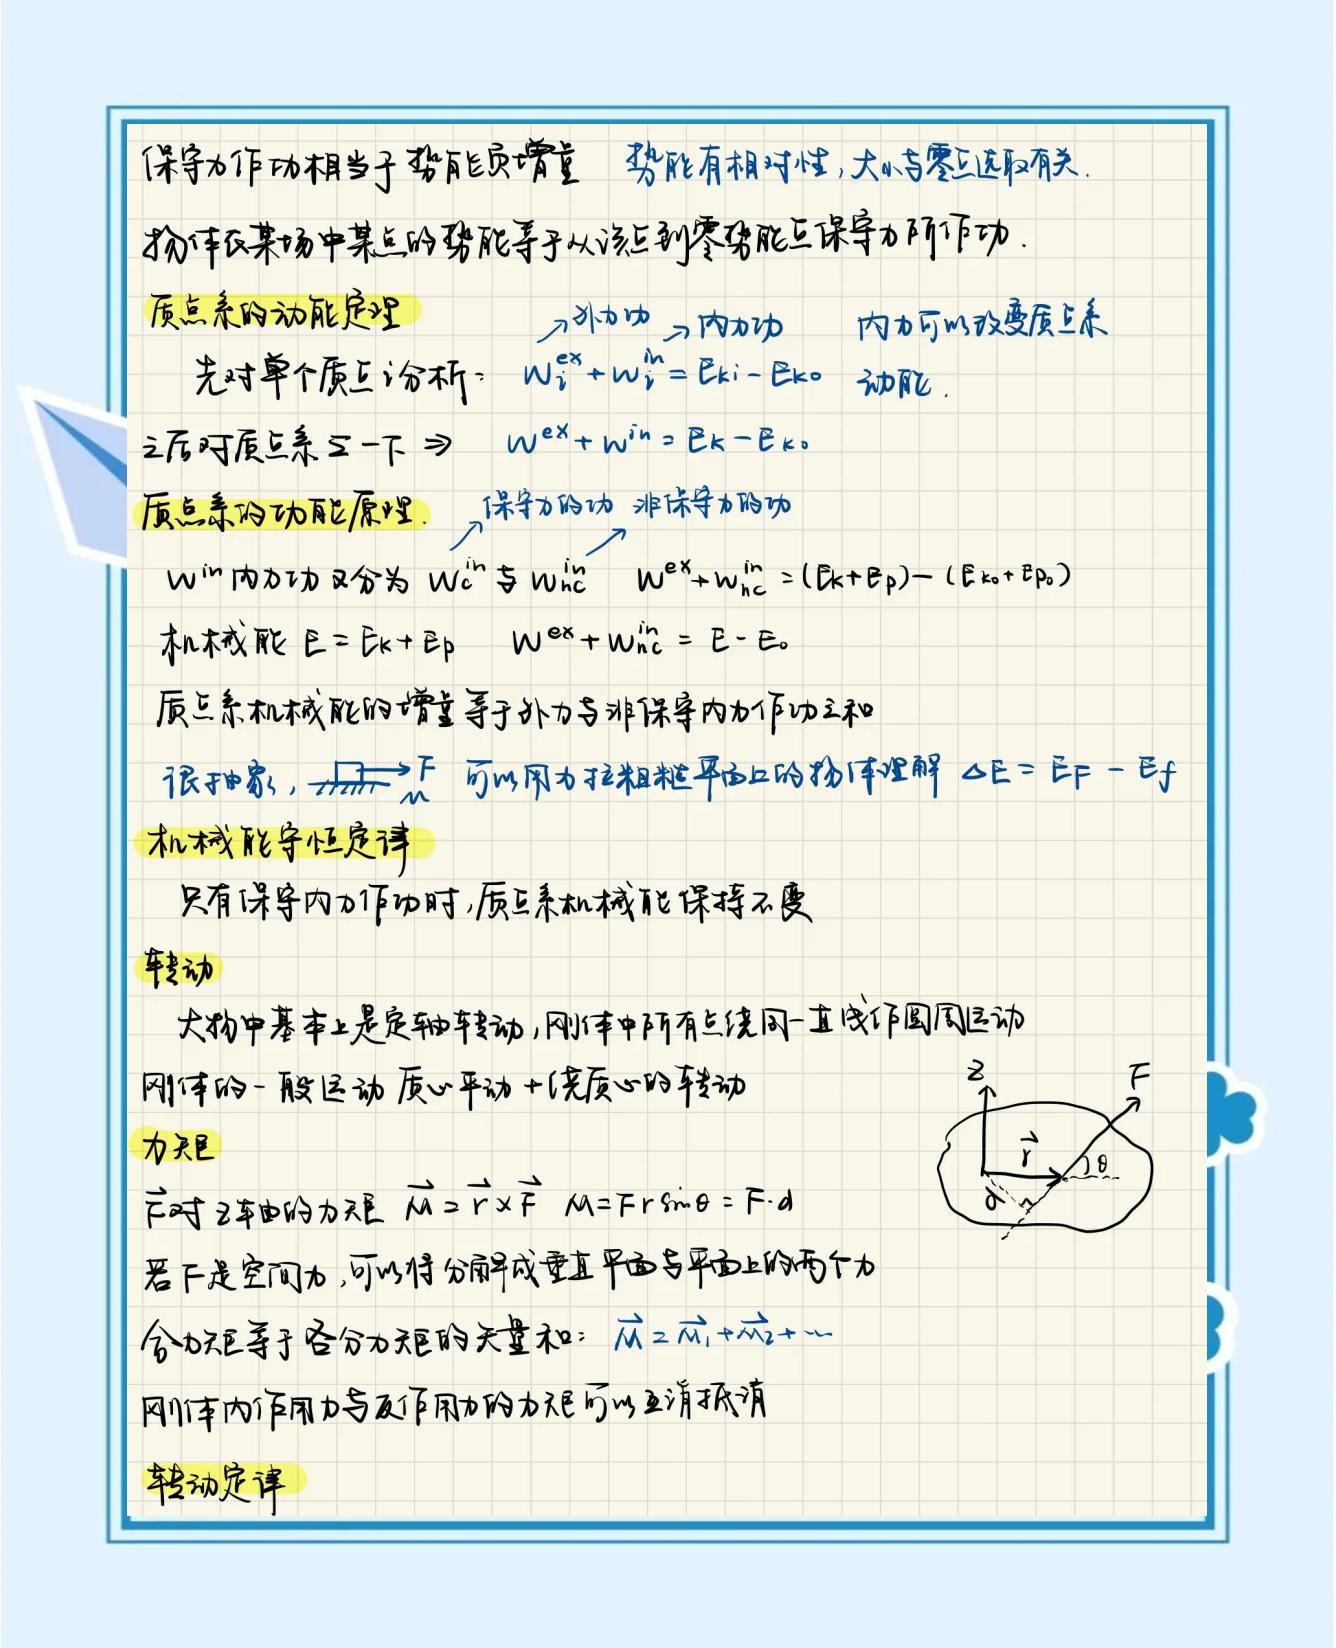 保守力作功相当于势能负增量 势能有相对性,大小与零点选取有关.
物体在某场中某点的势能等于从该点到零势能点保守力所作功.
质点系的动能定理
→外力功 →内力功 内力可以改变质点系
先对单个质点分析: Wᵢᵉˣ + Wᵢⁱⁿ = Eki - Eko 动能.
之后对质点系Σ一下 ⇒ Wᵉˣ + Wⁱⁿ = Ek - Eko
质点系的功能原理. 保守力的功 非保守力的功
Wⁱⁿ内力功又分为 Wcⁱⁿ与Wncⁱⁿ Wᵉˣ + Wncⁱⁿ = (Ek+Ep) - (Eko+Epo)
机械能 E = Ek + Ep Wᵉˣ + Wncⁱⁿ = E - E₀
质点系机械能的增量等于外力与非保守内力作功之和
很抽象, F μ 可以用力拉粗糙平面上的物体理解 ΔE = EF - Ef
机械能守恒定律
只有保守内力作功时,质点系机械能保持不变
转动
大物中基本上是定轴转动,刚体中所有点绕同一直线作圆周运动
刚体的一般运动 质心平动+绕质心的转动
Z F
力矩
r⃗ θ
F⃗对Z轴的力矩 M⃗ = r⃗ × F⃗ M = Fr sinθ = F·d
d
若F是空间力,可以将分解成垂直平面与平面上的两个力
合力矩等于各分力矩的矢量和: M⃗ = M⃗₁ + M⃗₂ + ⋯
刚体内作用力与反作用力的力矩可以互消抵消
转动定律